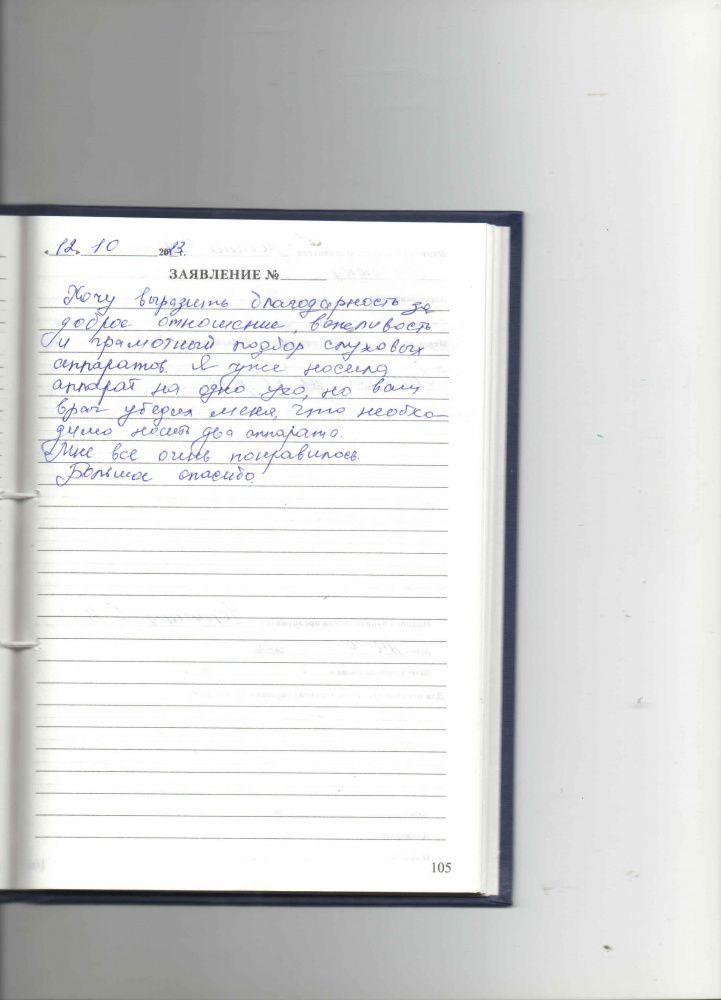 « 12 » 10 2013 г.
ЗАЯВЛЕНИЕ №
Хочу выразить благодарность за
доброе отношение, вежливость
и грамотный подбор слуховых
аппаратов. Я уже носила
аппарат на одно ухо, но ваш
врач убедил меня, что необхо-
димо носить два аппарата.
Мне все очень понравилось.
Большое спасибо.
105